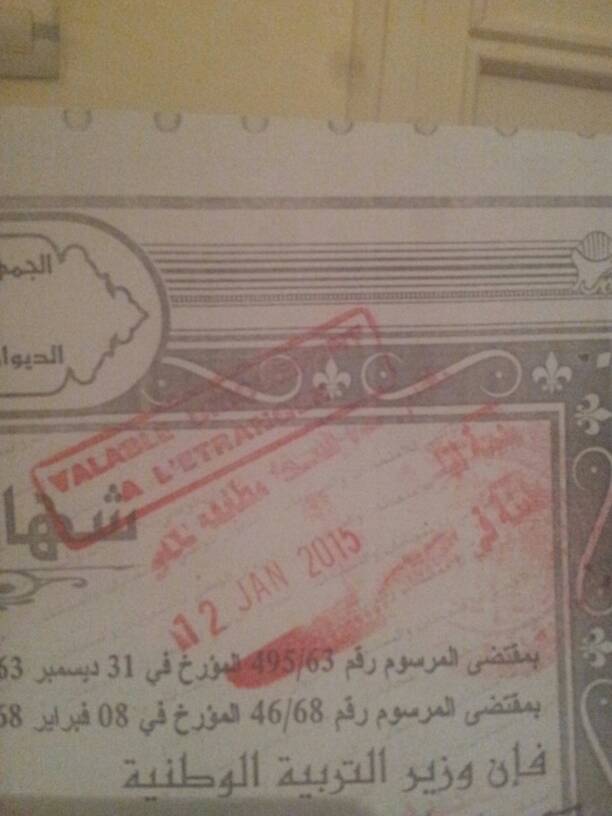 الجمهو
الديوان
VALABLE
A L'ETRANGER
شها
12 JAN 2015
بمقتضى المرسوم رقم 495/63 المؤرخ في 31 ديسمبر 63
بمقتضى المرسوم رقم 46/68 المؤرخ في 08 فبراير 68
فإن وزير التربية الوطنية